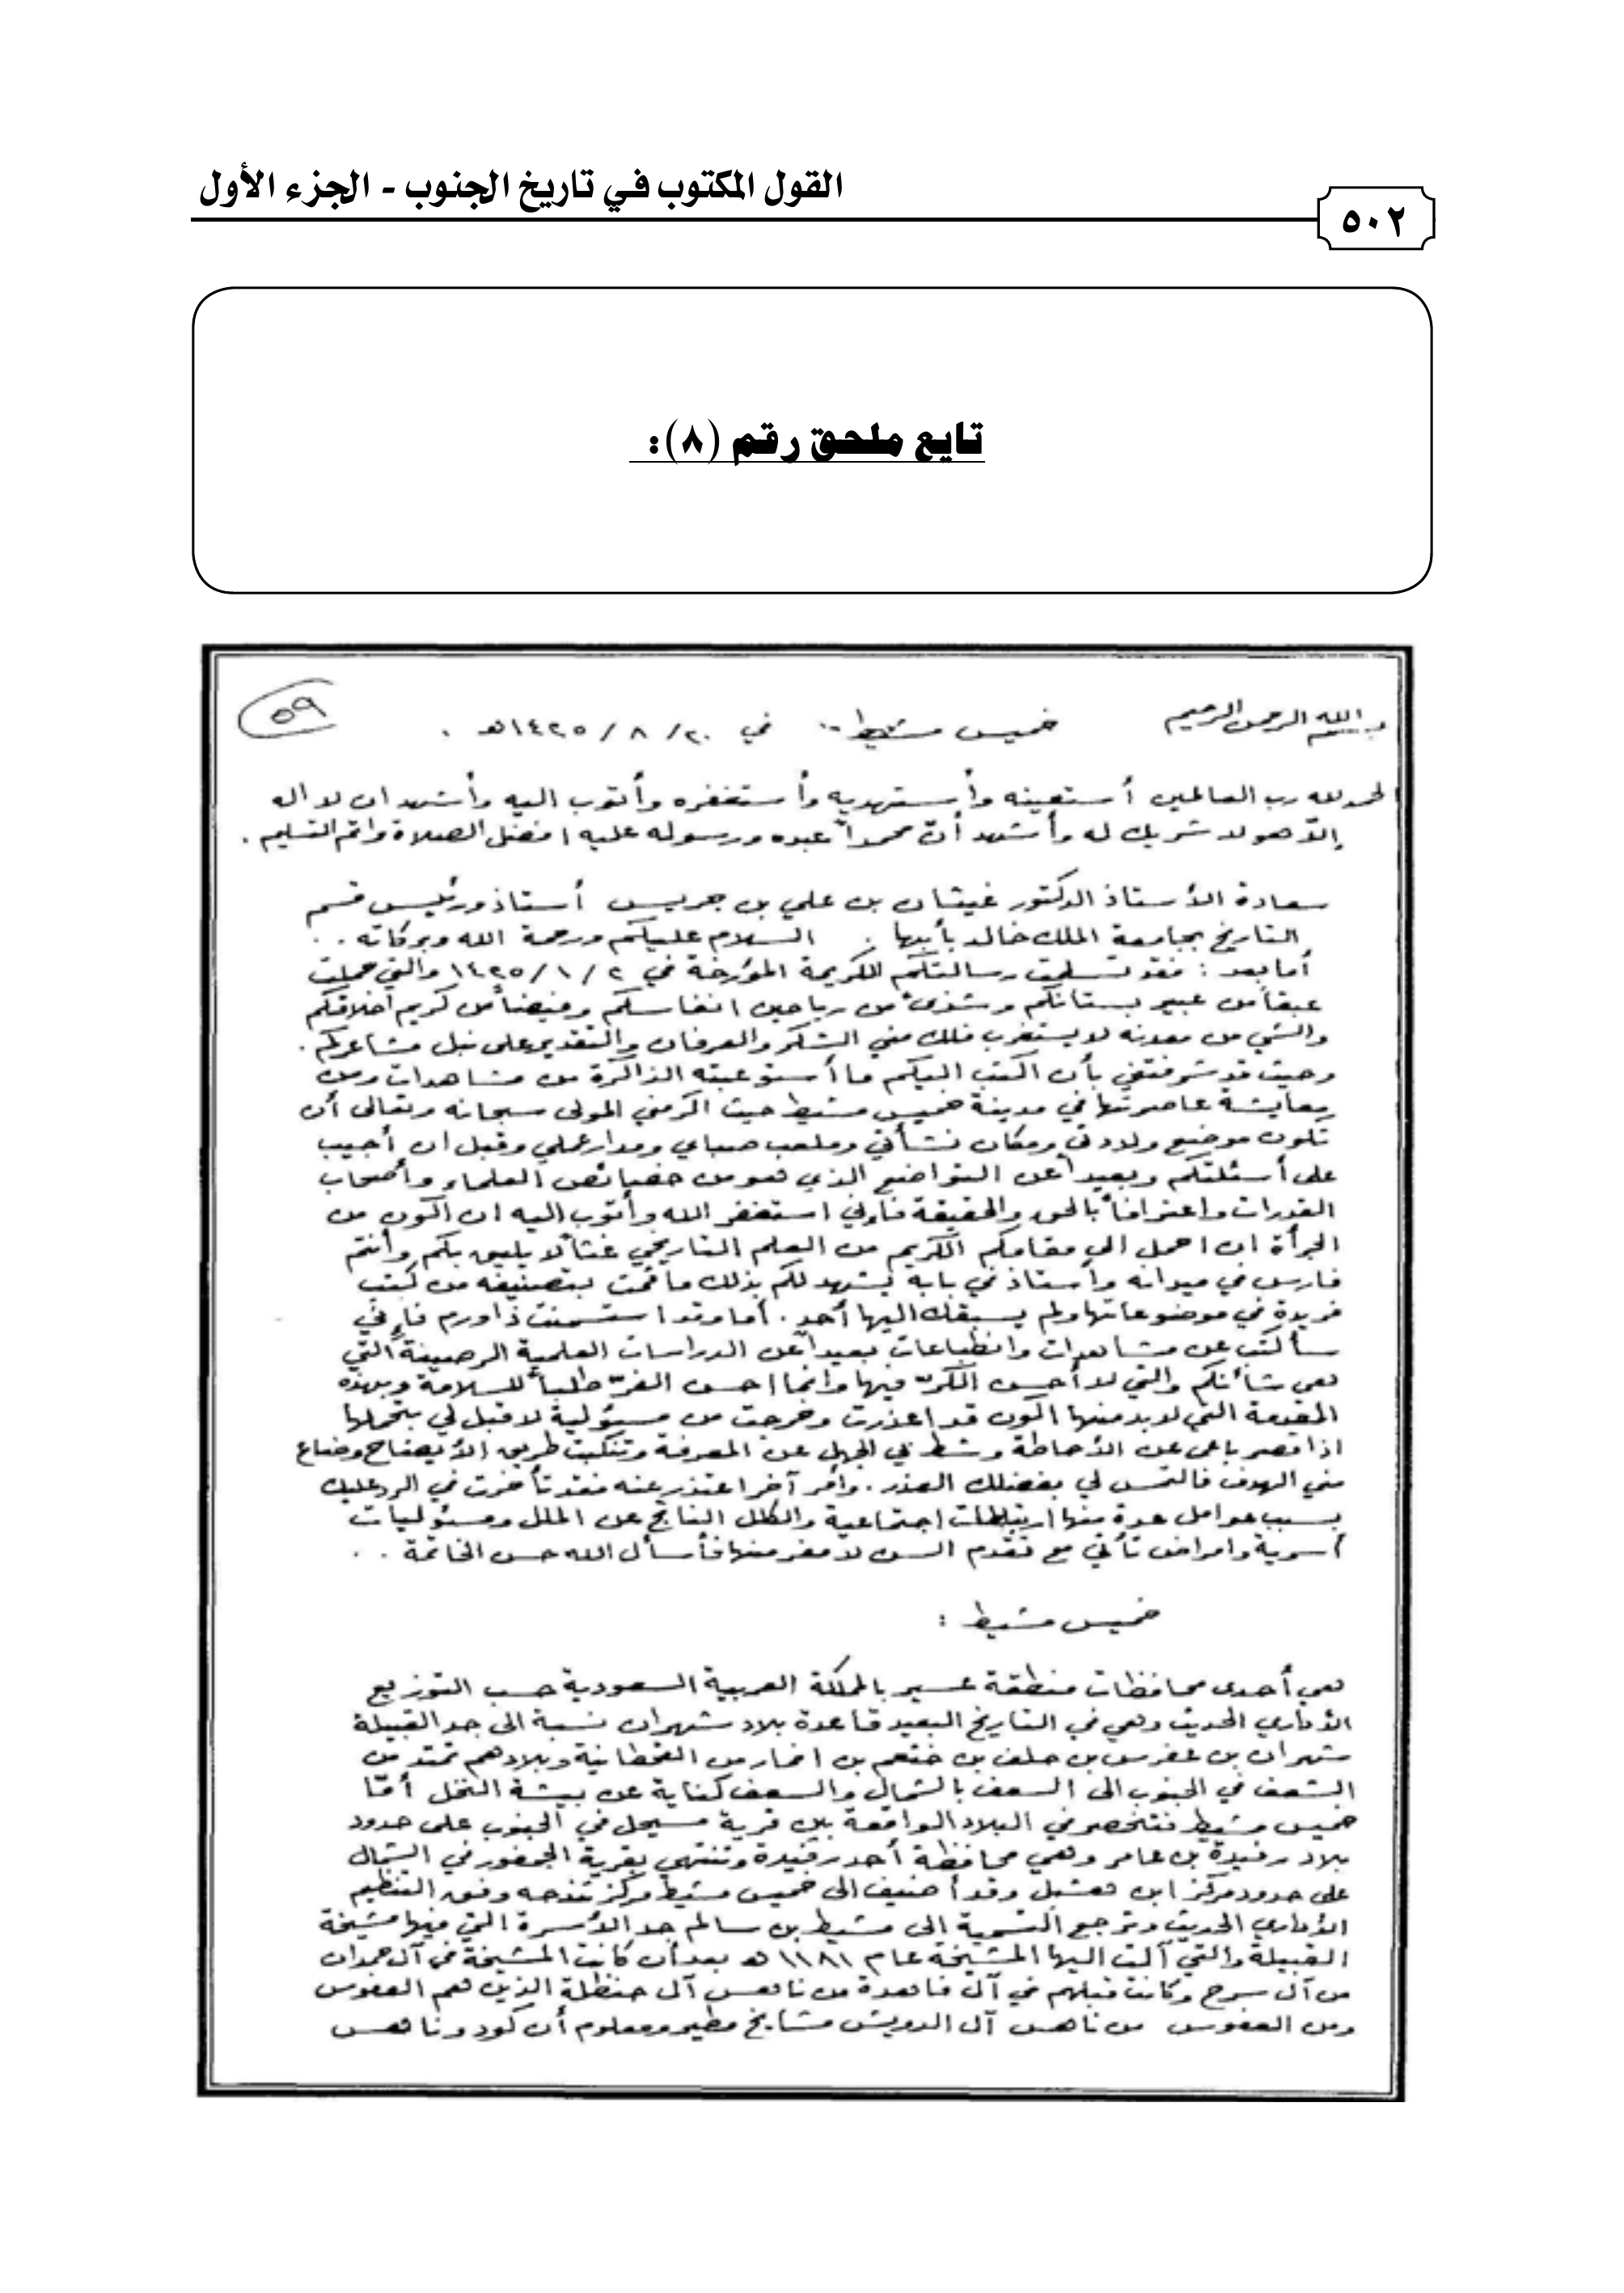 القول المكتوب في تاريخ الجنوب - الجزء الأول
٥٠٢
تابع ملحق رقم (٨):
٥٩
بسم الله الرحمن الرحيم خميس مشيط .. في ٢٠/ ٨ / ١٤٢٥هـ .
الحمد لله رب العالمين أستعينه وأستهديه وأستغفره وأتوب اليه وأشهد ان لا اله
إلاّ هو لا شريك له وأشهد أنّ محمداً عبده ورسوله عليه افضل الصلاة واتم التسليم .
سعادة الأستاذ الدكتور غيثان بن علي بن جريس أستاذ ورئيس قسم
التاريخ بجامعة الملك خالد بأبها : السلام عليكم ورحمة الله وبركاته . .
أما بعد : فقد تسلمت رسالتكم الكريمة المؤرخة في ١٤٢٥/١/٢ والتي حملت
عبقاً من عبير بستانكم وشذىً من رياحين انفاسكم وفيضاً من كريم اخلاقكم
والشي من معدنه لا يستغرب فلك مني الشكر والعرفان والتقدير على نبل مشاعركم .
وحيث قد شرفتني بأن اكتب اليكم ما أستوعبته الذاكرة من مشاهدات ومن
معايشة عاصرتها في مدينة خميس مشيط حيث اكرمني المولى سبحانه وتعالى أن
تكون موضع ولادتي ومكان نشأتي وملعب صباي ومدار عملي وقبل ان أجيب
على أسئلتكم وبعيداً عن التواضع الذي هو من خصائص العلماء وأصحاب
القدرات واعترافاً بالحق والحقيقة فإني استغفر الله وأتوب اليه ان اكون من
الجرأة ان احمل الى مقامكم الكريم من العلم التاريخي غثاً لا يليق بكم وأنتم
فارس في ميدانه وأستاذ في بابه يشهد لكم بذلك ما قمت بتصنيفه من كتب
فريدة في موضوعاتها ولم يسبقك اليها أحد . أما وقد استسمنت ذا ورم فإني
سأكتب عن مشاهدات وانطباعات بعيداً عن الدراسات العلمية الرصينة التي
هي شأنكم والتي لا أحسن الكرّ فيها وانما احسن الفرّ طلباً للسلامة وبهذه
المقدمة التي لابد منها اكون قد اعذرت وخرجت من مسئولية لا قبل لي بتحملها
اذا قصر باعي عن الأحاطة وشط بي الجهل عن المعرفة وتنكبت طريق الأيضاح وضاع
مني الهدف فالتمس لي بفضلك العذر . وأمر آخر اعتذر عنه فقد تأخرت في الرد عليك
بسبب عوامل عدة منها ارتباطات اجتماعية والكلل الناتج عن الملل ومسئوليات
أسرية وامراض تأتي مع تقدم السن لا مفر منها فأسأل الله حسن الخاتمة . .
خميس مشيط :
هي أحدى محافظات منطقة عسير بالمملكة العربية السعودية حسب التوزيع
الأداري الحديث وهي في التاريخ البعيد قاعدة بلاد شهران نسبة الى جد القبيلة
شهران بن عفرس بن حلف بن خثعم بن انمار من القحطانية وبلادهم تمتد من
الشعف في الجنوب الى السعف بالشمال والسعف كناية عن بيشة النخل أمّا
خميس مشيط فتنحصر في البلاد الواقعة بين قرية مسيحل في الجنوب على حدود
بلاد رفيدة بن عامر وهي محافظة أحد رفيدة وتنتهي بقرية الجمفور في الشمال
على حدود مركز ابن هشبل وقد أضيف الى خميس مشيط مركز تندحه وفق التنظيم
الأداري الحديث وترجع التسمية الى مشيط بن سالم جد الأسرة التي فيها مشيخة
القبيلة والتي آلت اليها المشيخة عام ١١٨١ هـ بعد أن كانت المشيخة في آل حمدان
من آل سرح وكانت قبلهم في آل فاهدة من ناهس آل حنظلة الذين هم العفوس
ومن العفوس من ناهس آل الدويش مشايخ مطير ومعلوم أن كود وناهس